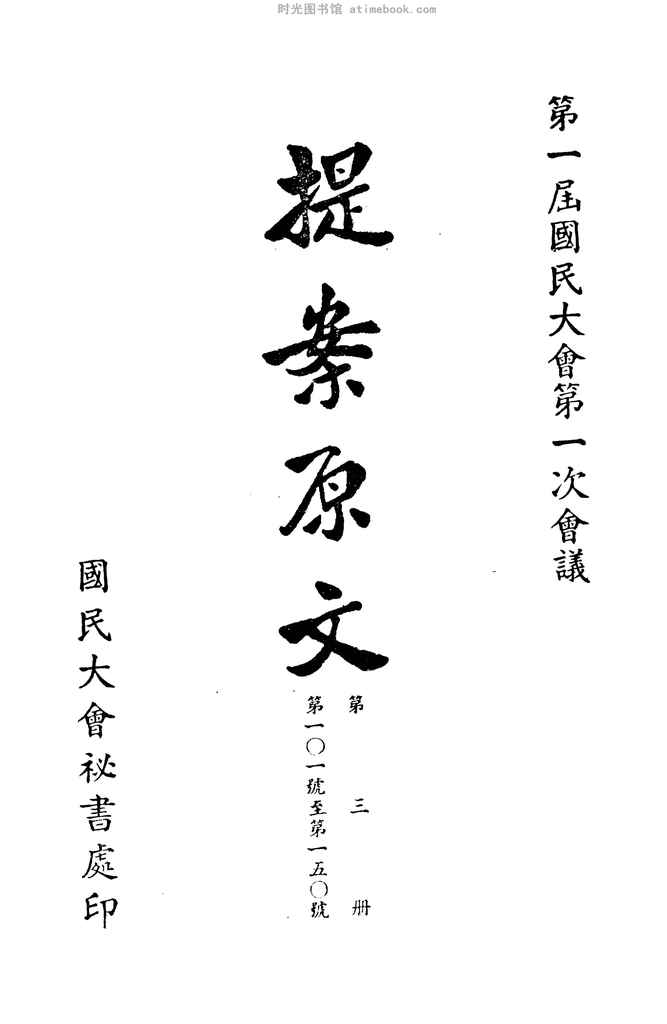 时光图书馆 atimebook.com
第一屆國民大會第一次會議
提案原文
第三册
第一〇一號至第一五〇號
國民大會祕書處印